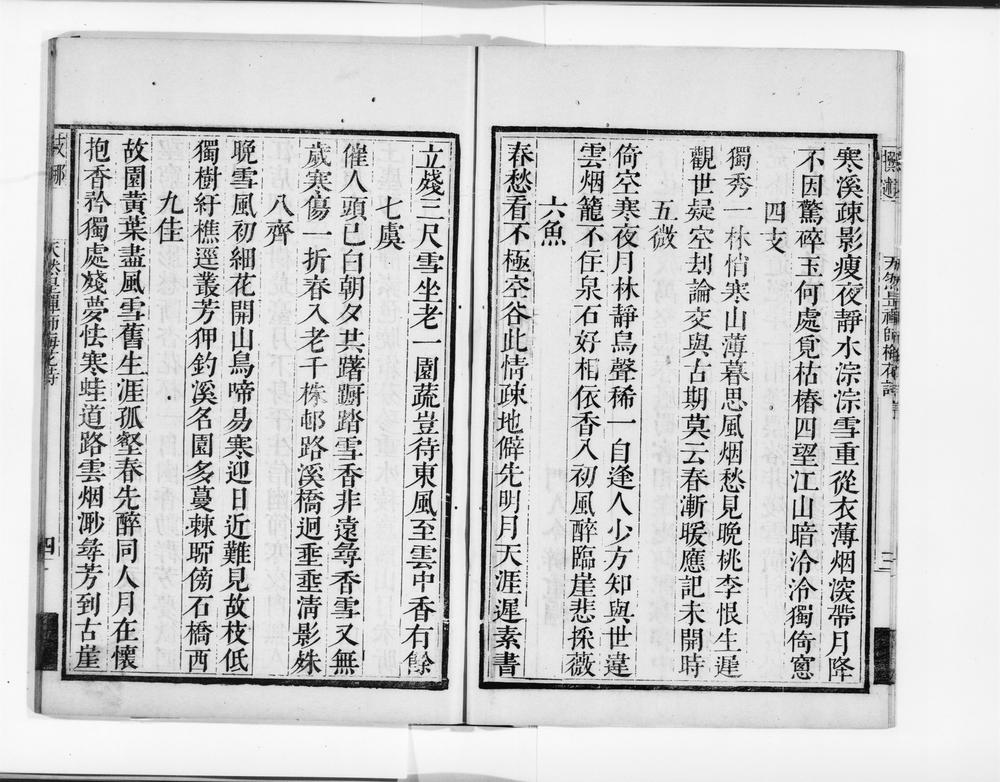 寒溪疎影瘦夜靜水淙淙雪重從衣薄烟深帶月降
不因驚碎玉何處覓枯樁四望江山暗泠泠獨倚窻
四支
獨秀一林悄寒山薄暮思風烟愁見晚桃李恨生遲
觀世疑空刦論交與古期莫云春漸暖應記未開時
五微
倚空寒夜月林靜鳥聲稀一自逢人少方知與世違
雲烟籠不住泉石好相依香入初風醉臨崖悲採薇
六魚
春愁看不極空谷此情疎地僻先明月天涯遲素書
立殘三尺雪坐老一園蔬豈待東風至雲中香有餘
七虞
催人頭已白朝夕共躇蹰踏雪香非遠尋香雪又無
歲寒傷一折春入老千株邨路溪橋迥垂垂淸影姝
八齊
晩雪風初細花開山鳥啼易寒迎日近難見故枝低
獨樹紆樵逕叢芳狎釣溪名園多蔓棘聊傍石橋西
九佳
故園黃葉盡風雪舊生涯孤壑春先醉同人月在懷
抱香矜獨處殘夢怯寒蛙道路雲烟渺尋芳到古崖
天然昰禪師梅花詩
四